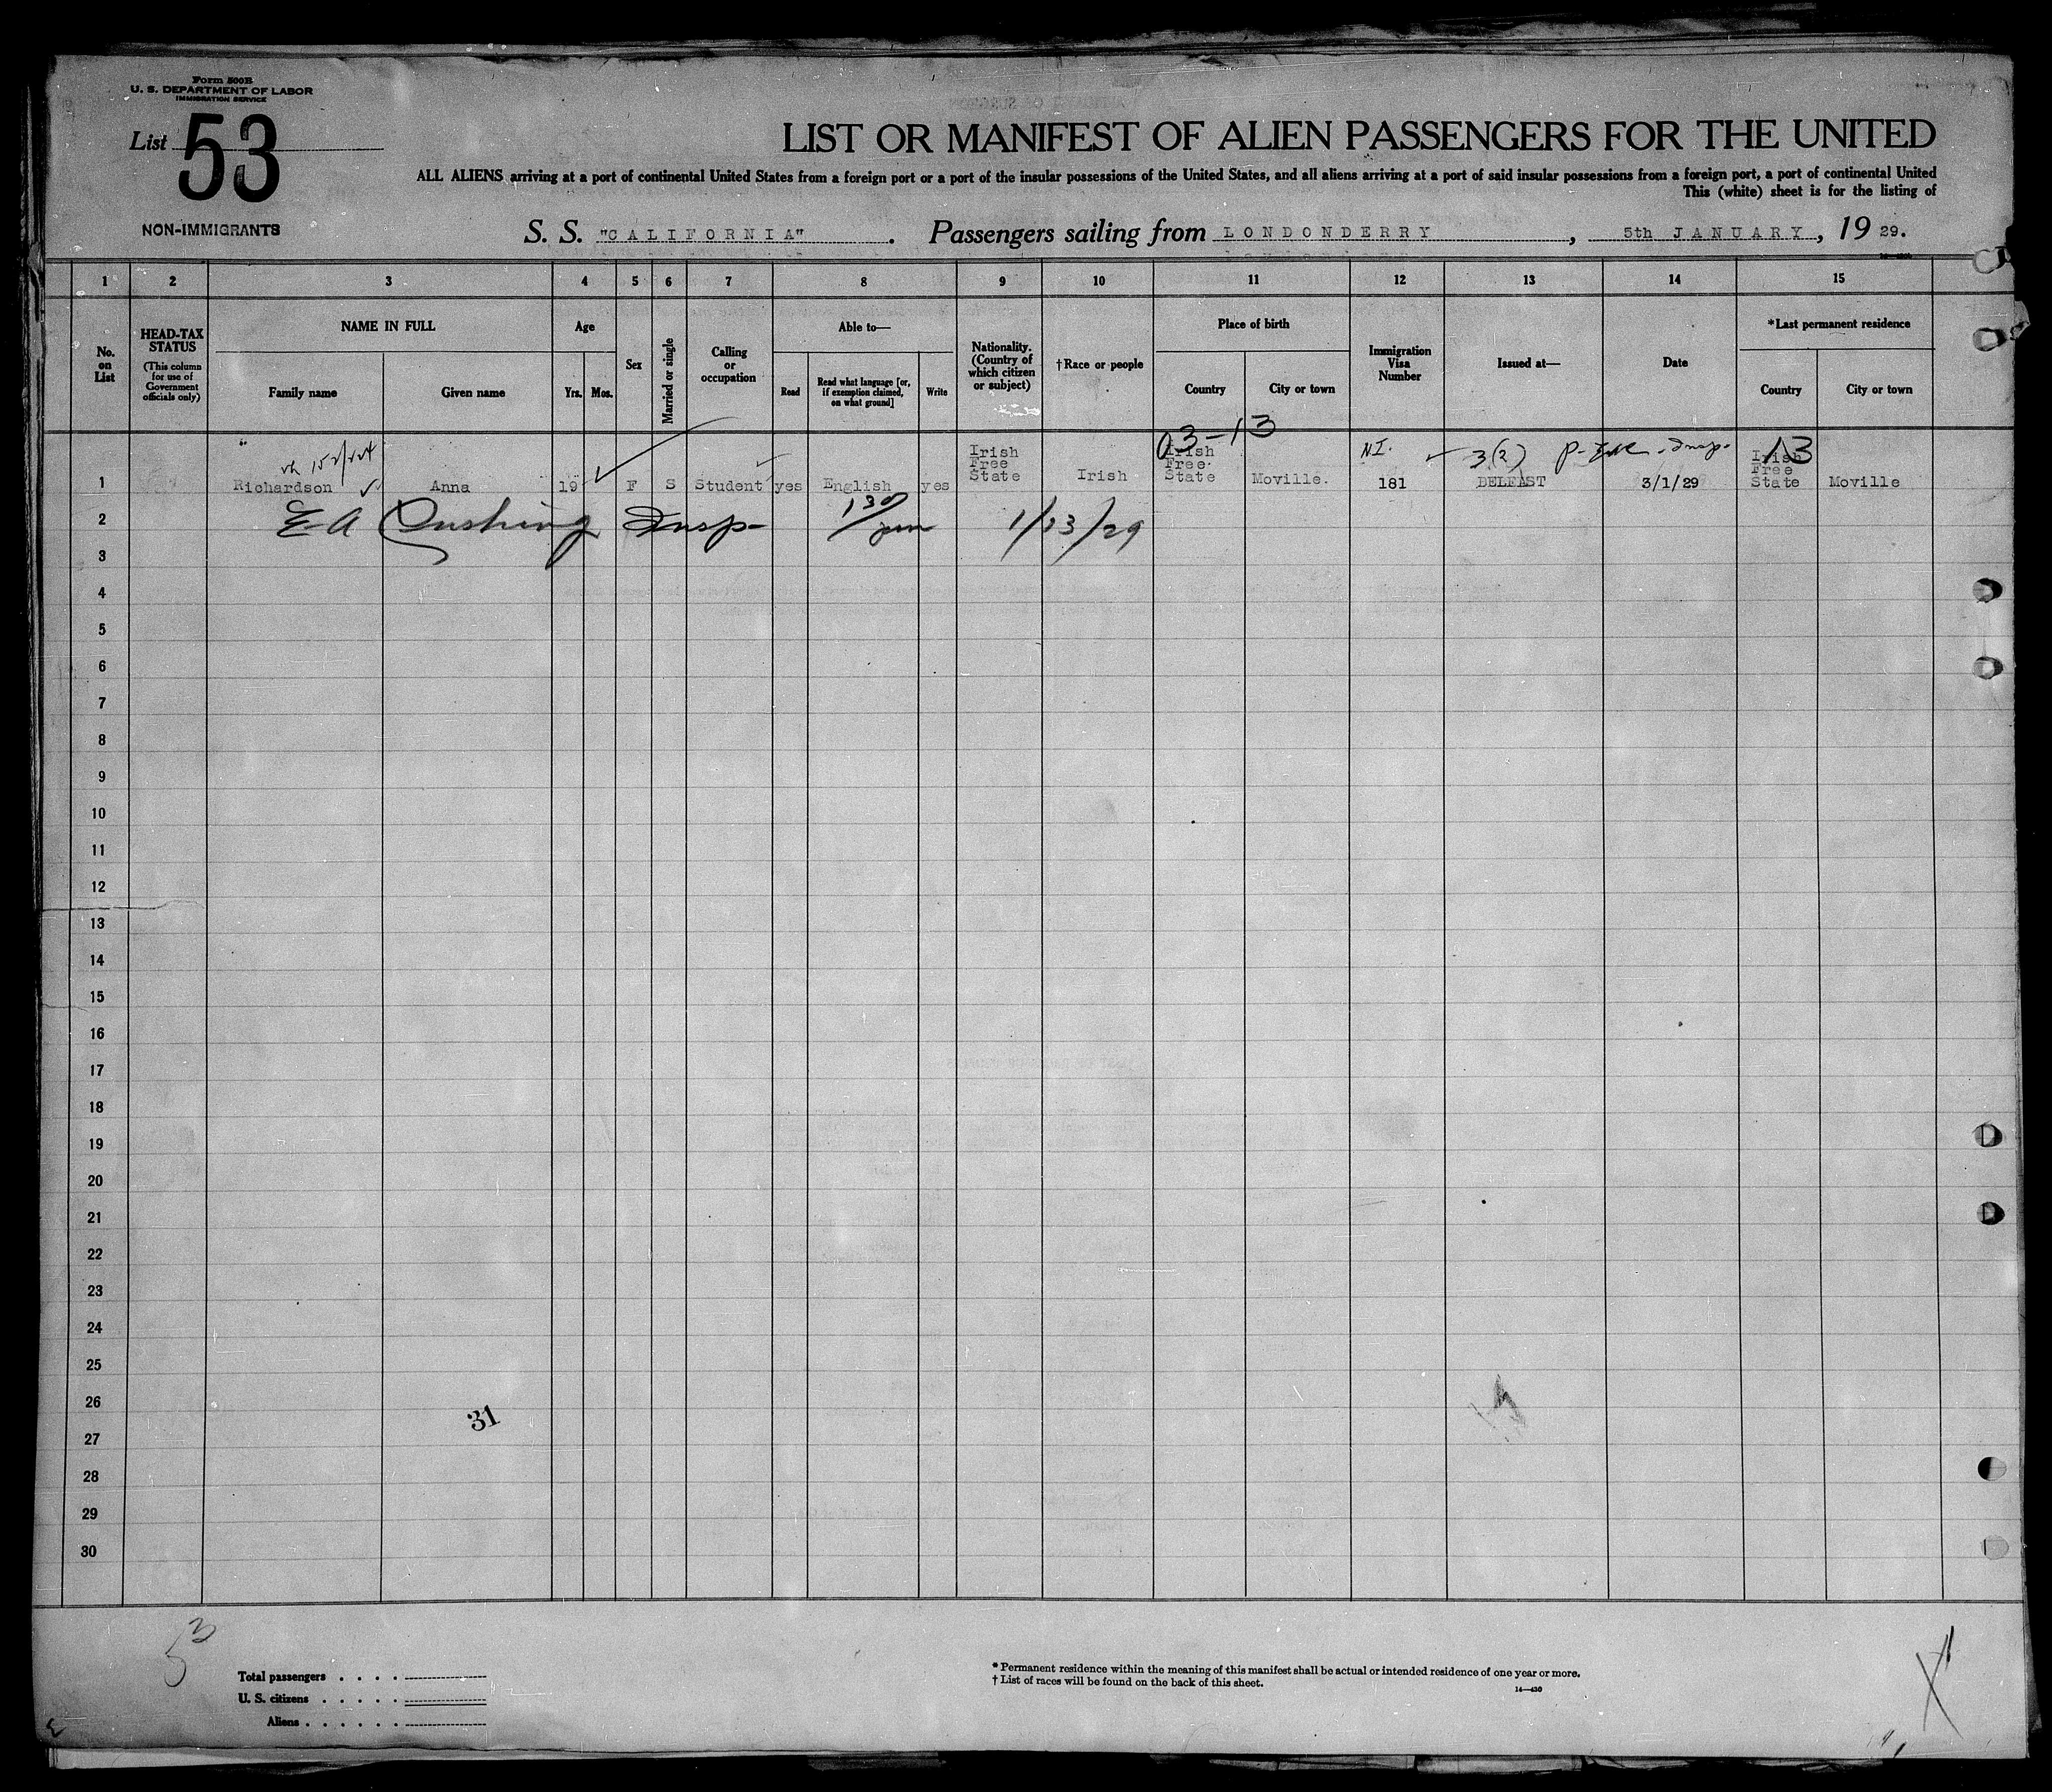 Form 500B
U. S. DEPARTMENT OF LABOR
IMMIGRATION SERVICE
List 53
NON-IMMIGRANTS
LIST OR MANIFEST OF ALIEN PASSENGERS FOR THE UNITED
ALL ALIENS arriving at a port of continental United States from a foreign port or a port of the insular possessions of the United States, and all aliens arriving at a port of said insular possessions from a foreign port, a port of continental United
This (white) sheet is for the listing of
S. S. "CALIFORNIA". Passengers sailing from LONDONDERRY, 5th JANUARY, 1929.
1 2 3 4 5 6 7 8 9 10 11 12 13 14 15
No. on List
HEAD-TAX STATUS
(This column for use of Government officials only)
NAME IN FULL
Family name
Given name
Age
Yrs.
Mos.
Sex
Married or single
Calling or occupation
Able to—
Read
Read what language [or, if exemption claimed, on what ground]
Write
Nationality. (Country of which citizen or subject)
†Race or people
Place of birth
Country
City or town
Immigration Visa Number
Issued at—
Date
*Last permanent residence
Country
City or town
03-13
NI. 3(2)
13
1 Richardson Anna 19 F S Student yes English yes Irish Free State Irish Irish Free State Moville. 181 BELFAST 3/1/29 Irish Free State Moville
2 E-A Cushing Insp- 1 30 pm 1/13/29
3
4
5
6
7
8
9
10
11
12
13
14
15
16
17
18
19
20
21
22
23
24
25
26
31
27
28
29
30
53
Total passengers
U. S. citizens
Aliens
* Permanent residence within the meaning of this manifest shall be actual or intended residence of one year or more.
† List of races will be found on the back of this sheet.
14—430
X